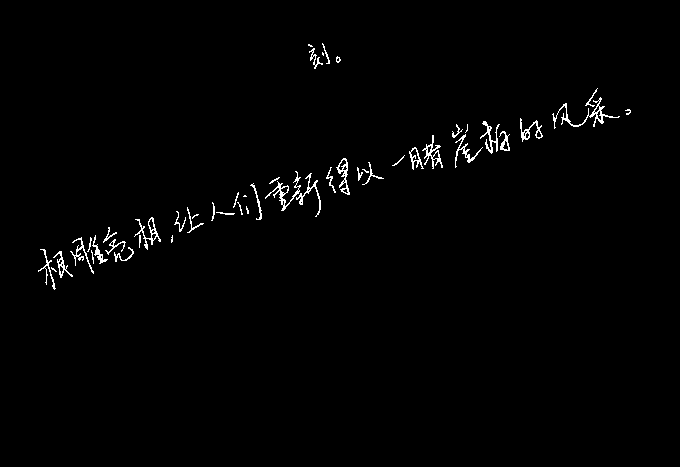 刻。
根雕亮相,让人们重新得以一睹崖柏的风采。